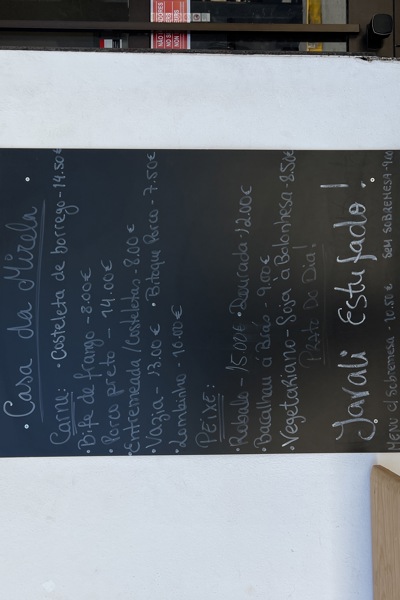 Casa da Mirela
Carni: • Costeleta de borrego - 14.50€
• Bife de frango - 8.00€
• Porco preto - 14.00€
• Entremeada/Costeletas - 8.00€
• Vazia - 13.00€ • Bitoque Porco - 7.50€
• Lombinho - 10.00€
PEIXE:
• Robalo - 15.00€ • Dourada - 12.00€
• Bacalhau á Brás - 9.00€
• Vegetariano - Soja à Bolonhesa - 8.50€
PRATO DO DIA!
Javali Estufado!
MENU c/ SobREMESA - 10.50€ SEM SOBREMESA - 9.00
NÃO
NO
NON